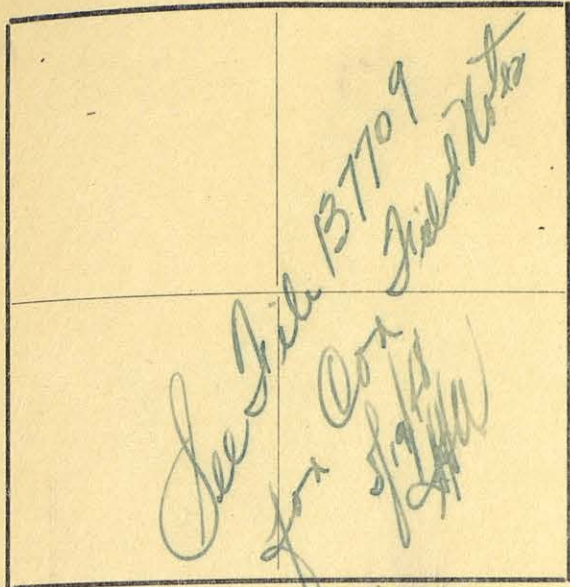 See File 137709
for Cor Field Notes